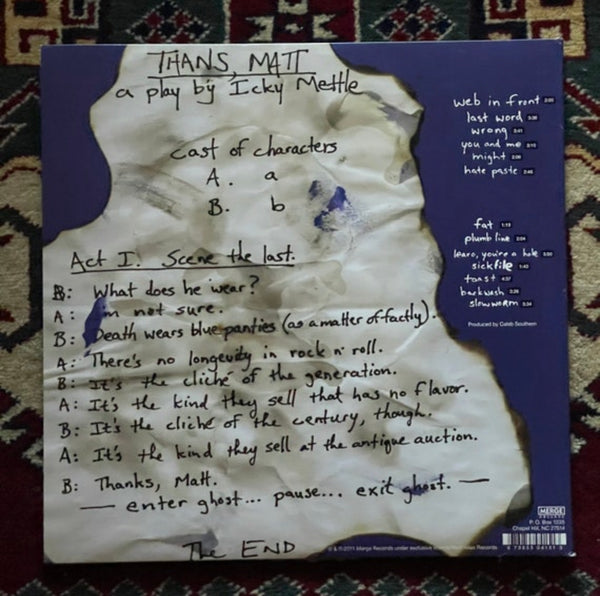 THANS, MATT
a play by Icky Mettle
Cast of characters
A. a
B. b
Act I. Scene the last.
B: What does he wear?
A: I'm not sure.
B: Death wears blue panties (as a matter of factly).
A: There's no longevity in rock n' roll.
B: It's the cliché of the generation.
A: It's the kind they sell that has no flavor.
B: It's the cliché of the century, though.
A: It's the kind they sell at the antique auction.
B: Thanks, Matt.
— enter ghost... pause... exit ghost. —
The END
web in front
last word
wrong
you and me
might
hate paste
fat
plumb line
learo, you're a hole
sickfile
toast
backwash
slow worm
Produced by Caleb Southern
MERGE
RECORDS
P.O. Box 1235
Chapel Hill, NC 27514
℗ & © 2011 Merge Records under exclusive Records